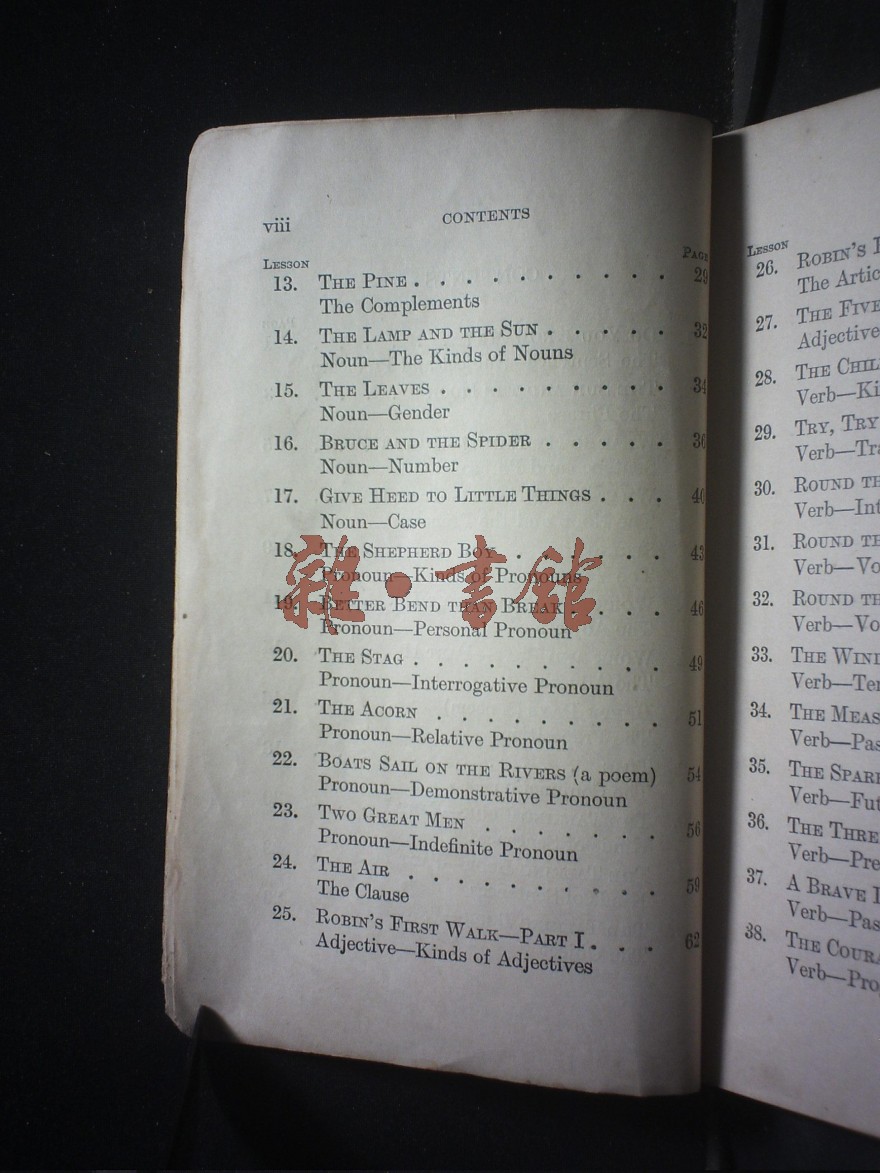 viii CONTENTS
LESSON PAGE
13. THE PINE . . . . . . . . . . 29
The Complements
14. THE LAMP AND THE SUN . . . . . 32
Noun—The Kinds of Nouns
15. THE LEAVES . . . . . . . . . 34
Noun—Gender
16. BRUCE AND THE SPIDER . . . . . 36
Noun—Number
17. GIVE HEED TO LITTLE THINGS . . . 40
Noun—Case
18. THE SHEPHERD BOY . . . . . . 43
Pronoun—Kinds of Pronouns
19. BETTER BEND THAN BREAK . . . . 46
Pronoun—Personal Pronoun
20. THE STAG . . . . . . . . . . 49
Pronoun—Interrogative Pronoun
21. THE ACORN . . . . . . . . . 51
Pronoun—Relative Pronoun
22. BOATS SAIL ON THE RIVERS (a poem) 54
Pronoun—Demonstrative Pronoun
23. TWO GREAT MEN . . . . . . . 56
Pronoun—Indefinite Pronoun
24. THE AIR . . . . . . . . . . 59
The Clause
25. ROBIN'S FIRST WALK—PART I . . . 62
Adjective—Kinds of Adjectives
雜·書館
LESSON
26. ROBIN'S
The
27. THE FIVE
Adjective
28. THE
Verb—
29. TRY, TRY
Verb—
30. ROUND
Verb—
31. ROUND
Verb—
32. ROUND
Verb—
33. THE
Verb—
34. THE
Verb—
35. THE
Verb—
36. THE
Verb—
37. A BRAVE
Verb—
38. THE
Verb—